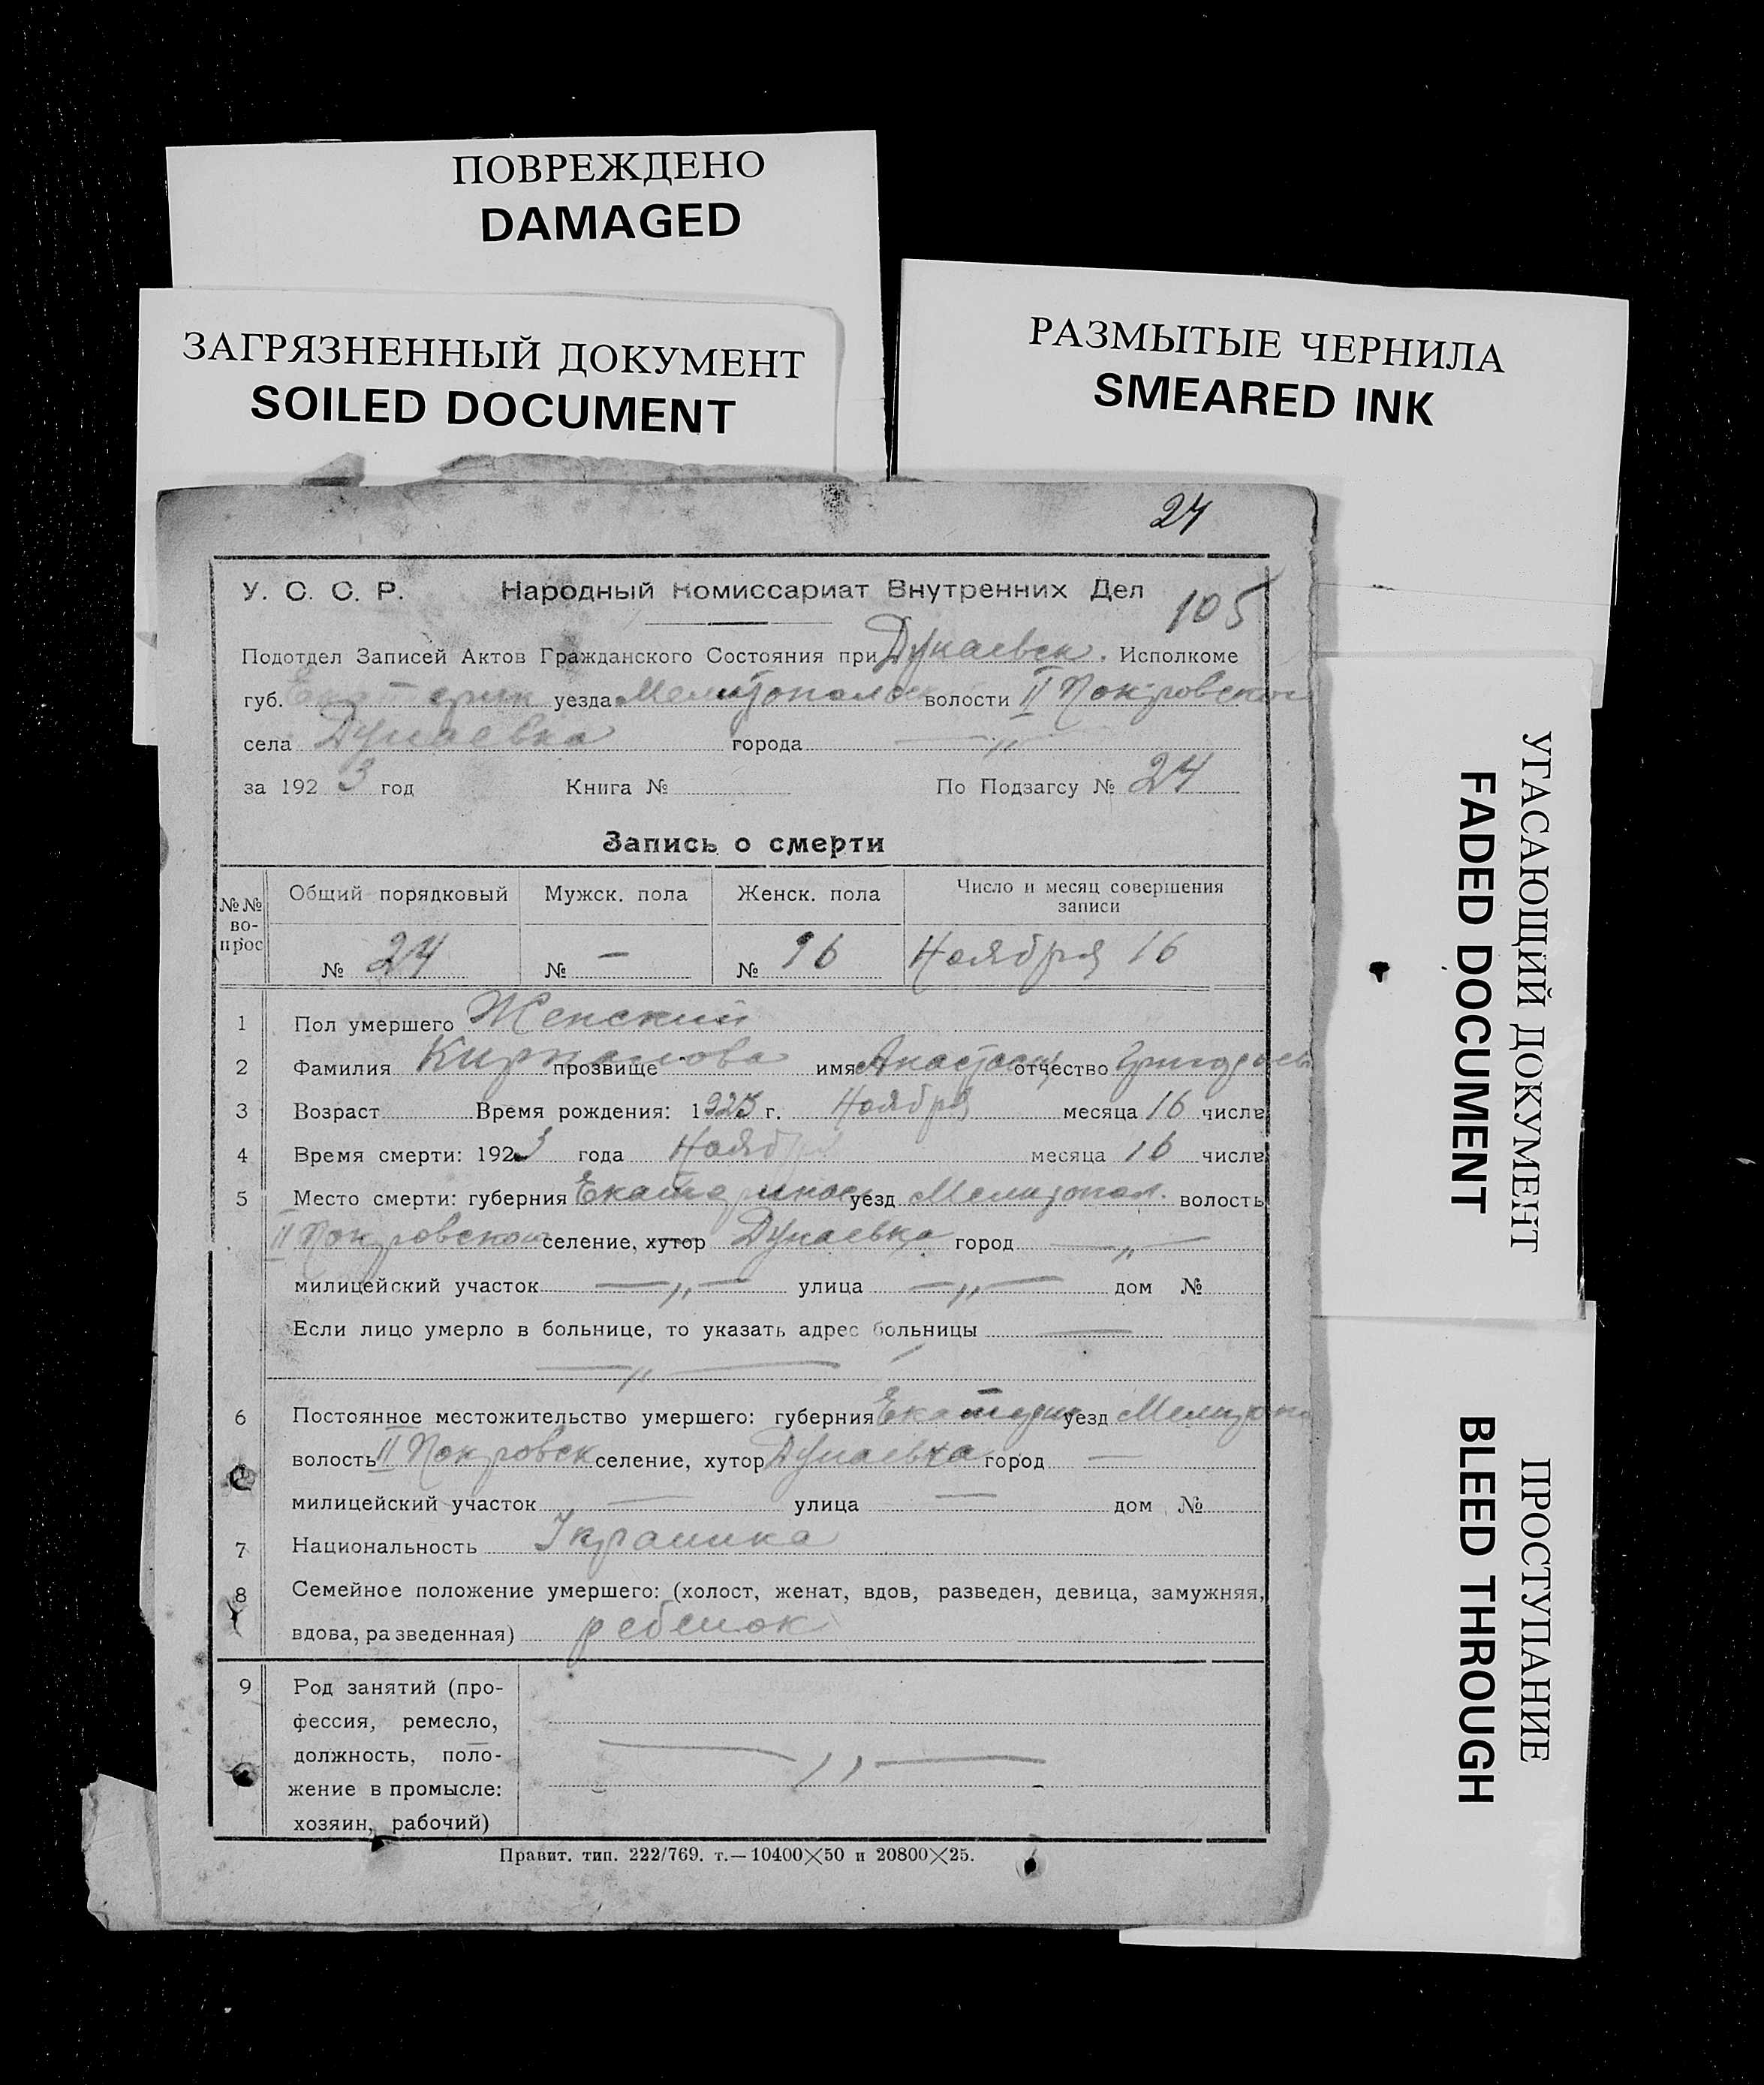 ПОВРЕЖДЕНО
DAMAGED
ЗАГРЯЗНЕННЫЙ ДОКУМЕНТ
SOILED DOCUMENT
РАЗМЫТЫЕ ЧЕРНИЛА
SMEARED INK
24
У. С. С. Р. Народный Комиссариат Внутренних Дел
105
Подотдел Записей Актов Гражданского Состояния при Дунаевск. Исполкоме
губ. Екатерин уезда Мелитопольск волости II Покровской
села Дунаевка города — „ —
за 1923 год Книга № По Подзагсу № 24
Запись о смерти
№№ во- прос Общий порядковый Мужск. пола Женск. пола Число и месяц совершения записи
№ 24 № — № 16 Ноября 16
1 Пол умершего Женский
2 Фамилия прозвище имя Анастасия отчество
3 Возраст Время рождения: 1923 г. Ноября месяца 16 числа
4 Время смерти: 1923 года Ноября месяца 16 числа
5 Место смерти: губерния Екатеринос уезд Мелитопол. волость
II Покровской селение, хутор Дунаевка город — „ —
милицейский участок — „ — улица — „ — дом №
Если лицо умерло в больнице, то указать адрес больницы —
— „ —
6 Постоянное местожительство умершего: губерния Екатерин уезд Мелитопо
волость II Покровск селение, хутор Дунаевка город —
милицейский участок — улица — дом №
7 Национальность Украинка
8 Семейное положение умершего: (холост, женат, вдов, разведен, девица, замужняя,
вдова, разведенная) ребенок
9 Род занятий (про-
фессия, ремесло,
должность, поло- — „ —
жение в промысле:
хозяин, рабочий)
Правит. тип. 222/769. т.—10400×50 и 20800×25.
УГАСАЮЩИЙ ДОКУМЕНТ
FADED DOCUMENT
ПРОСТУПАНИЕ
BLEED THROUGH